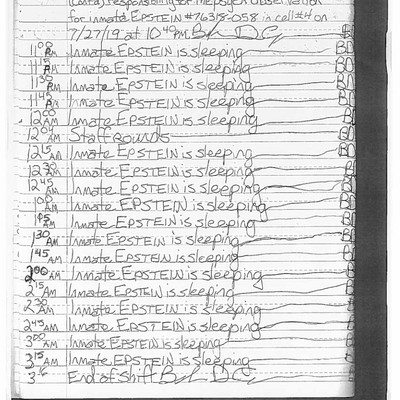 responsibility for the psych observation
for inmate EPSTEIN #76318-058 in cell #4 on
7/27/19 at 10 40 PM.
11 00 PM Inmate EPSTEIN is sleeping BD
11 15 PM Inmate EPSTEIN is sleeping BD
11 30 PM Inmate EPSTEIN is sleeping BD
11 45 PM Inmate EPSTEIN is sleeping BD
12 00 AM Inmate EPSTEIN is sleeping BD
12 09 AM Staff rounds BD
12 15 AM Inmate EPSTEIN is sleeping BD
12 30 AM Inmate EPSTEIN is sleeping BD
12 45 AM Inmate EPSTEIN is sleeping BD
1 00 AM Inmate EPSTEIN is sleeping BD
1 15 AM Inmate EPSTEIN is sleeping BD
1 30 AM Inmate EPSTEIN is sleeping BD
1 45 AM Inmate EPSTEIN is sleeping BD
2 00 AM Inmate EPSTEIN is sleeping BD
2 15 AM Inmate EPSTEIN is sleeping BD
2 30 AM Inmate EPSTEIN is sleeping BD
2 45 AM Inmate EPSTEIN is sleeping BD
3 00 AM Inmate EPSTEIN is sleeping BD
3 15 AM Inmate EPSTEIN is sleeping BD
End of Shift